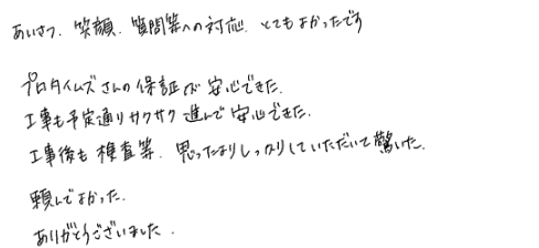 あいさつ、笑顔、質問等への対応、とてもよかったです
プロタイムズさんの保証が安心できた。
工事も予定通りサクサク進んで安心できた。
工事後も検査等、思ったよりしっかりしていただいて驚いた。
頼んでよかった。
ありがとうございました。